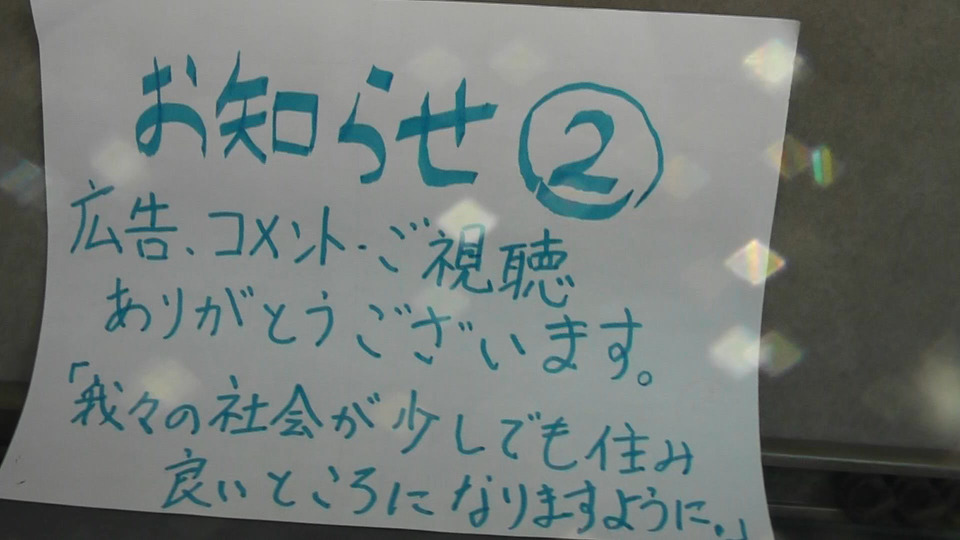 お知らせ②
広告、コメント・ご視聴
ありがとうございます。
「我々の社会が少しでも住み
良いところになりますように。」